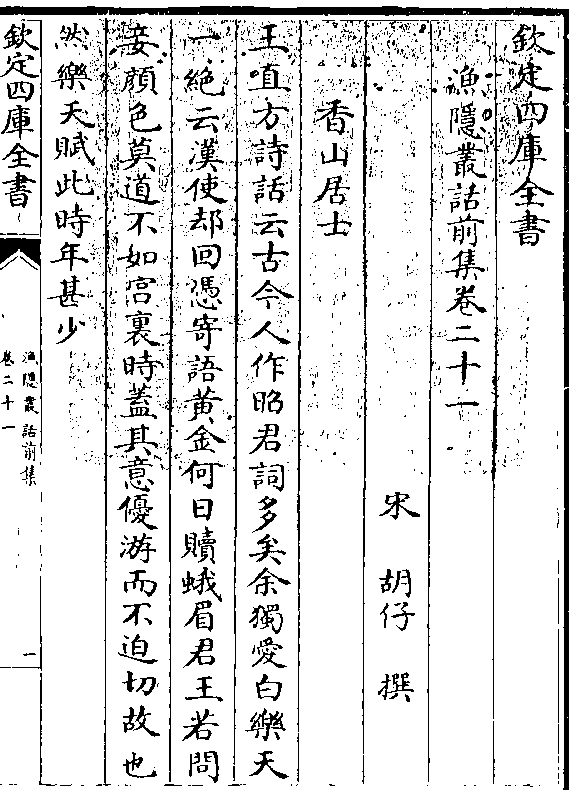 欽定四庫全書
漁隱叢話前集卷二十一
宋 胡仔 撰
香山居士
王直方詩話云古今人作昭君詞多矣余獨愛白樂天
一絶云漢使却回憑寄語黄金何日贖蛾眉君王若問
妾顔色莫道不如宫裏時蓋其意優游而不迫切故也
然樂天賦此時年甚少
欽定四庫全書
漁隱叢話前集
卷二十一
一